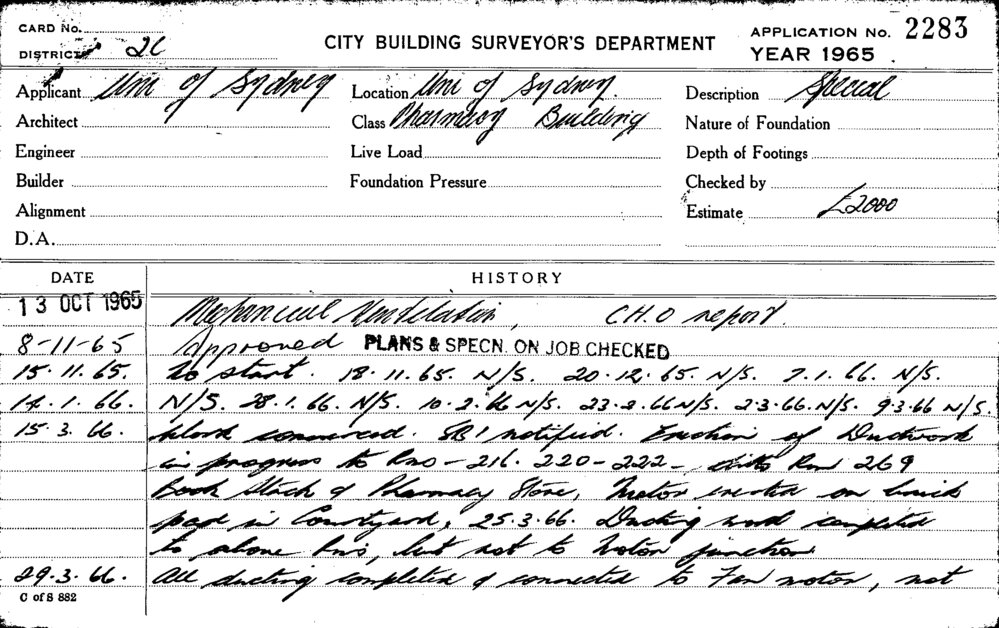 CARD No.
DISTRICT 2C
CITY BUILDING SURVEYOR'S DEPARTMENT
APPLICATION No. 2283
YEAR 1965
Applicant Uni of Sydney Location Uni of Sydney. Description Special
Architect Class Pharmacy Building Nature of Foundation
Engineer Live Load Depth of Footings
Builder Foundation Pressure Checked by
Alignment Estimate £2000
D.A.
DATE HISTORY
13 OCT 1965 Mechanical Ventilation, C.H.O report.
8-11-65 Approved PLANS & SPECN. ON JOB CHECKED
15.11.65. To start. 18.11.65. N/S. 20.12.65. N/S. 7.1.66. N/S.
14.1.66. N/S. 28.1.66. N/S. 10.2.66 N/S. 23.2.66 N/S. 2.3.66. N/S. 9.3.66 N/S.
15.3.66. Work commenced. SBI notified. Erection of Ductwork
in progress to Rms - 216. 220-222 - ditto Rm 269
Book Stack & Pharmacy Store, Motor erected on brick
pad in Courtyard, 25.3.66. Ducting work completed
to above Rms, but not to Motor junction
29.3.66. All ducting completed & connected to Fan motor, not
C of S 882